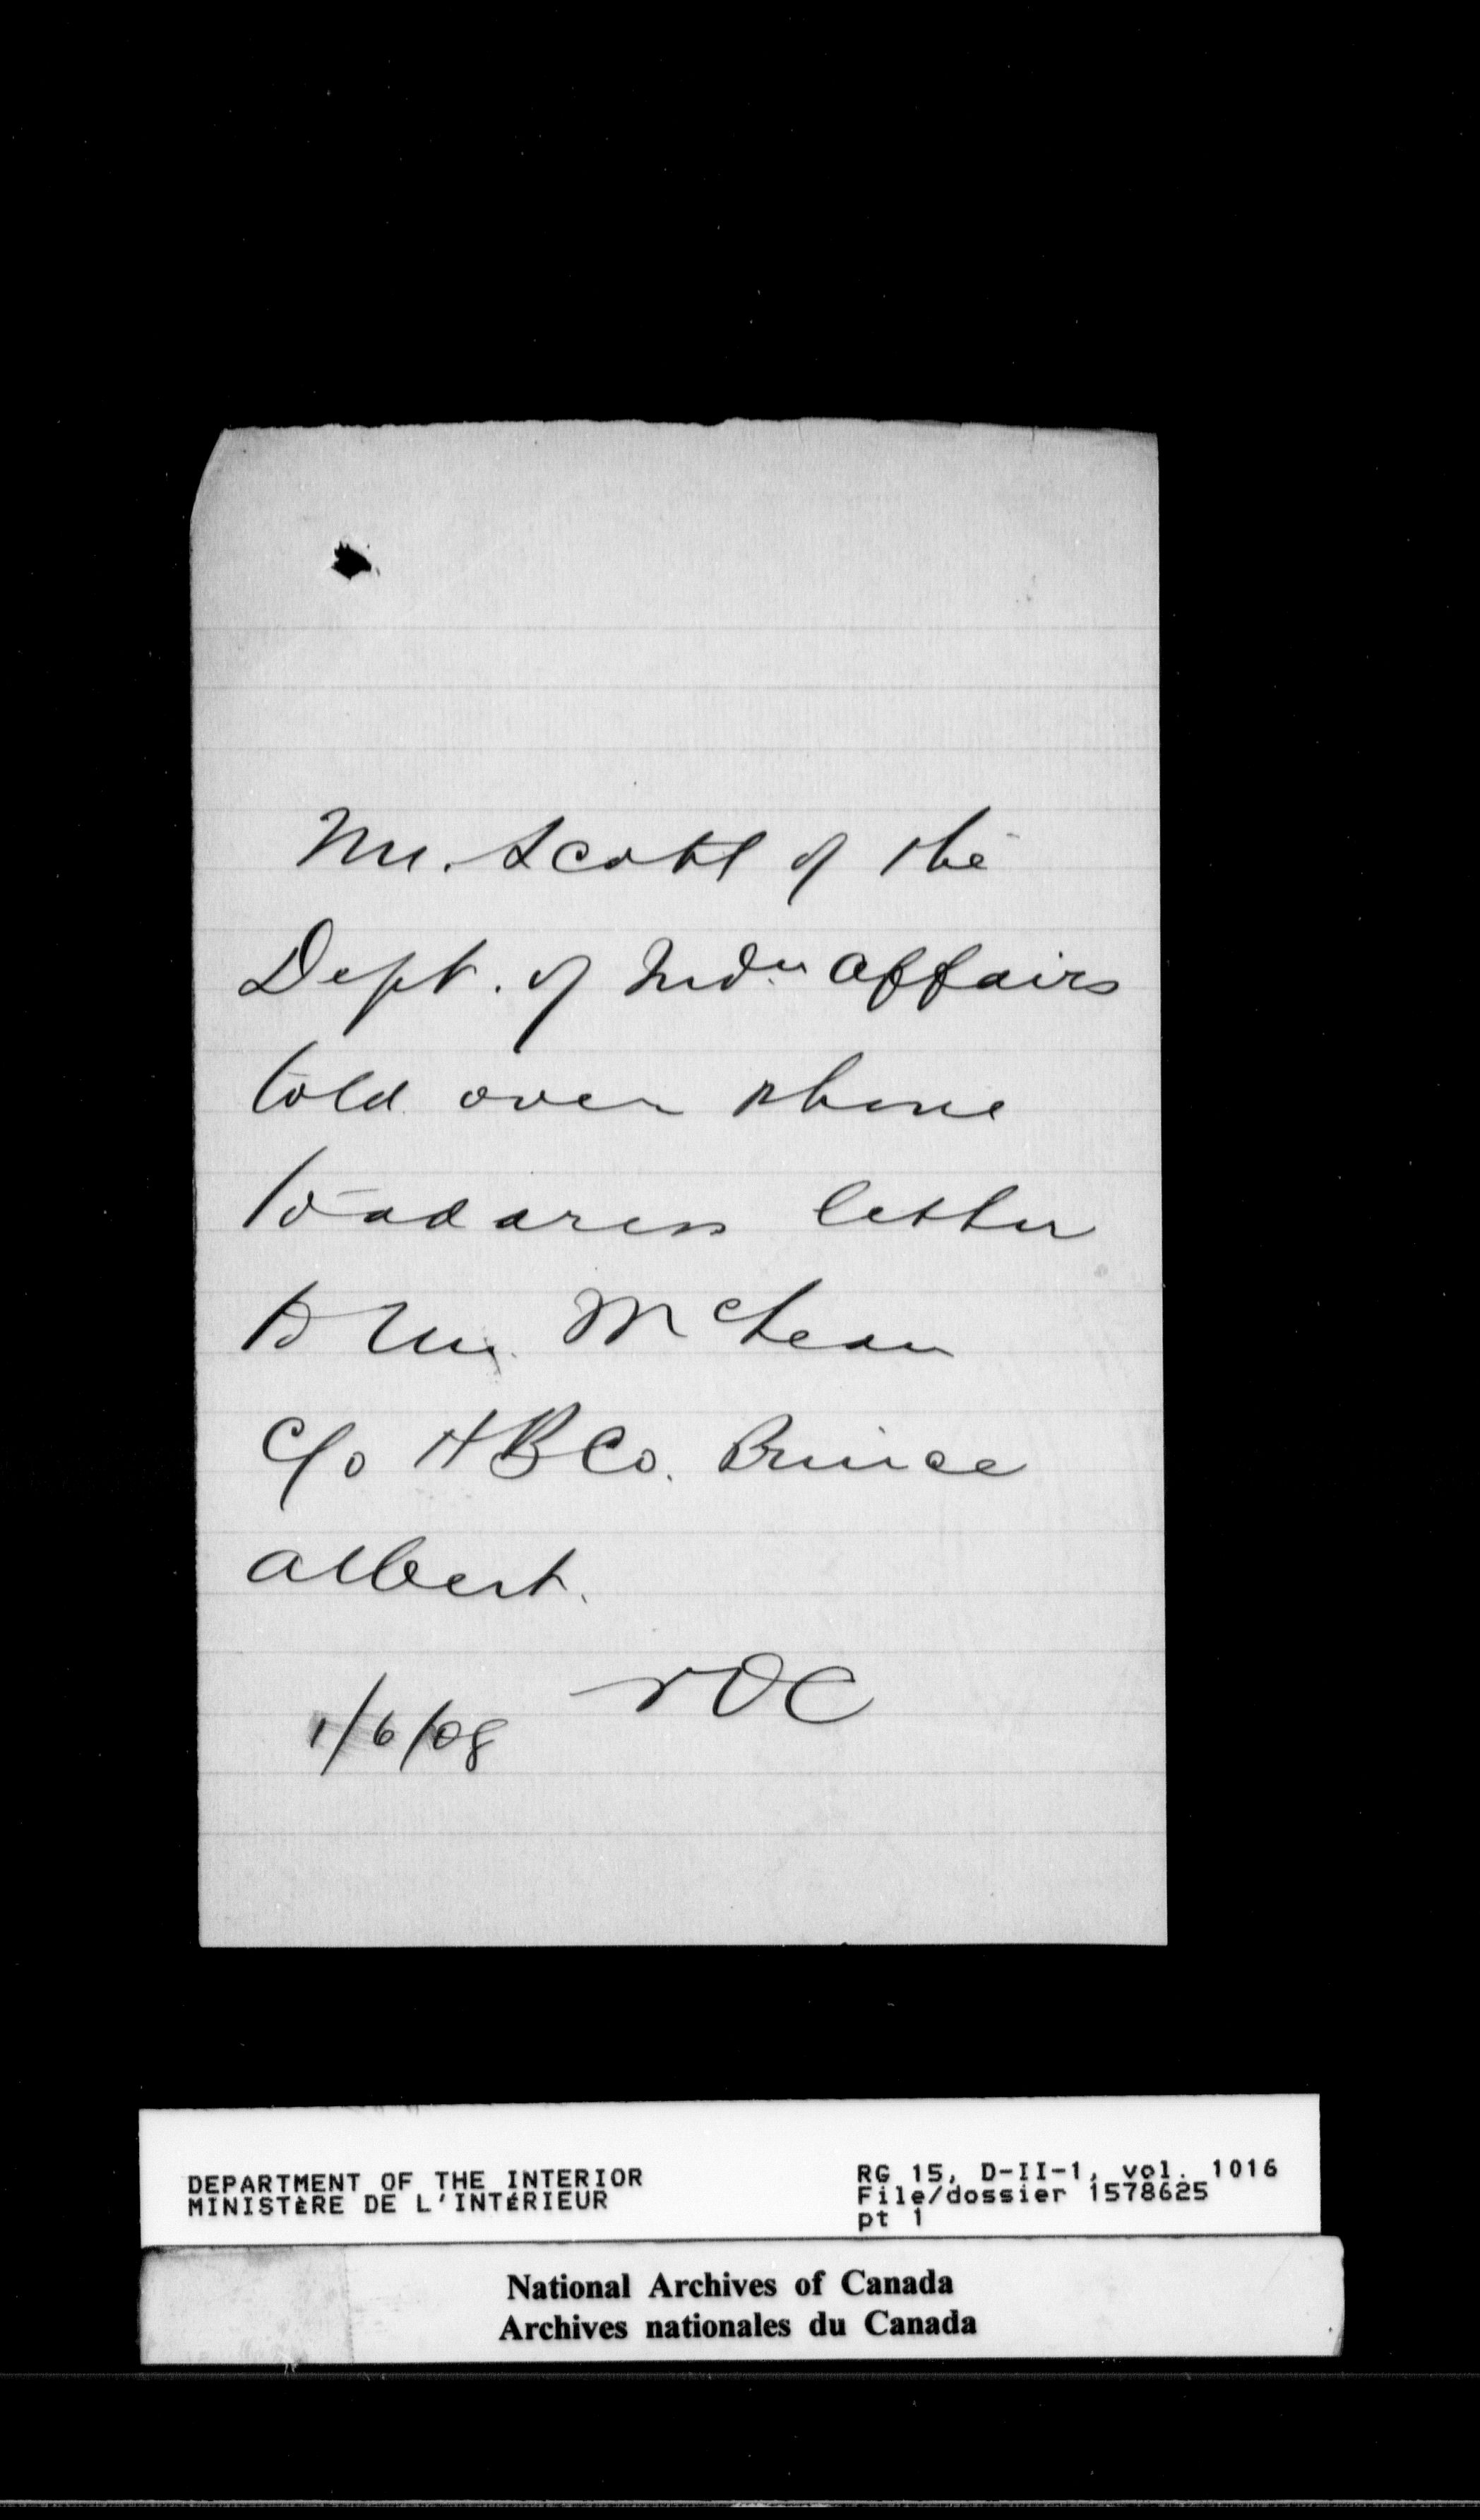 Mr. Scott of the
Dept. of Indn Affairs
told over phone
to address letter
to Mr. McLean
c/o HBCo. Prince
Albert.
1/6/08
DEPARTMENT OF THE INTERIOR
MINISTÈRE DE L'INTÉRIEUR
RG 15, D-II-1, vol. 1016
File/dossier 1578625
pt 1
National Archives of Canada
Archives nationales du Canada